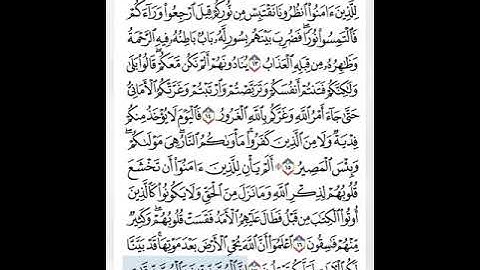 لِلَّذِينَ ءَامَنُوا۟ ٱنظُرُونَا نَقْتَبِسْ مِن نُّورِكُمْ قِيلَ ٱرْجِعُوا۟ وَرَآءَكُمْ
فَٱلْتَمِسُوا۟ نُورًا ۖ فَضُرِبَ بَيْنَهُم بِسُورٍ لَّهُۥ بَابٌۢ بَاطِنُهُۥ فِيهِ ٱلرَّحْمَةُ
وَظَٰهِرُهُۥ مِن قِبَلِهِ ٱلْعَذَابُ ١٣ يُنَادُونَهُمْ أَلَمْ نَكُن مَّعَكُمْ ۖ قَالُوا۟ بَلَىٰ
وَلَٰكِنَّكُمْ فَتَنتُمْ أَنفُسَكُمْ وَتَرَبَّصْتُمْ وَٱرْتَبْتُمْ وَغَرَّتْكُمُ ٱلْأَمَانِىُّ
حَتَّىٰ جَآءَ أَمْرُ ٱللَّهِ وَغَرَّكُم بِٱللَّهِ ٱلْغَرُورُ ١٤ فَٱلْيَوْمَ لَا يُؤْخَذُ مِنكُمْ
فِدْيَةٌ وَلَا مِنَ ٱلَّذِينَ كَفَرُوا۟ ۚ مَأْوَىٰكُمُ ٱلنَّارُ ۖ هِىَ مَوْلَىٰكُمْ ۖ
وَبِئْسَ ٱلْمَصِيرُ ١٥ أَلَمْ يَأْنِ لِلَّذِينَ ءَامَنُوٓا۟ أَن تَخْشَعَ
قُلُوبُهُمْ لِذِكْرِ ٱللَّهِ وَمَا نَزَلَ مِنَ ٱلْحَقِّ وَلَا يَكُونُوا۟ كَٱلَّذِينَ
أُوتُوا۟ ٱلْكِتَٰبَ مِن قَبْلُ فَطَالَ عَلَيْهِمُ ٱلْأَمَدُ فَقَسَتْ قُلُوبُهُمْ ۖ وَكَثِيرٌ
مِّنْهُمْ فَٰسِقُونَ ١٦ ٱعْلَمُوٓا۟ أَنَّ ٱللَّهَ يُحْىِ ٱلْأَرْضَ بَعْدَ مَوْتِهَا ۚ قَدْ بَيَّنَّا